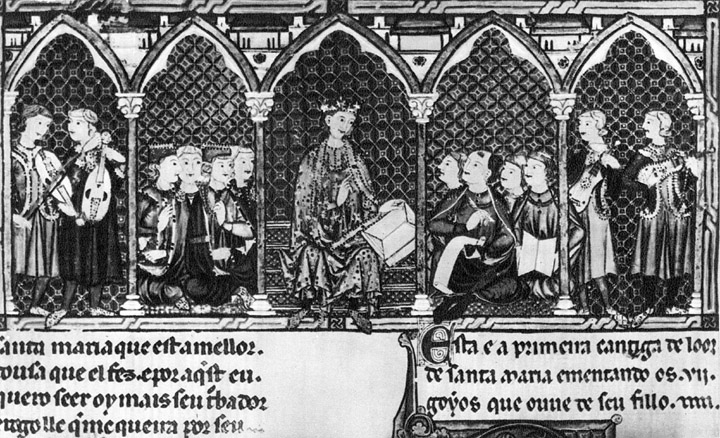 santa maria que est amellor.
cousa que el fez. e por aqst eu.
quero seer oy mais seu t̃bador
e rogolle q̃ me queira por seu
Esta e a primeira cantiga de loor
de santa maria ementando os. vii.
goyos que ouue de seu fillo.